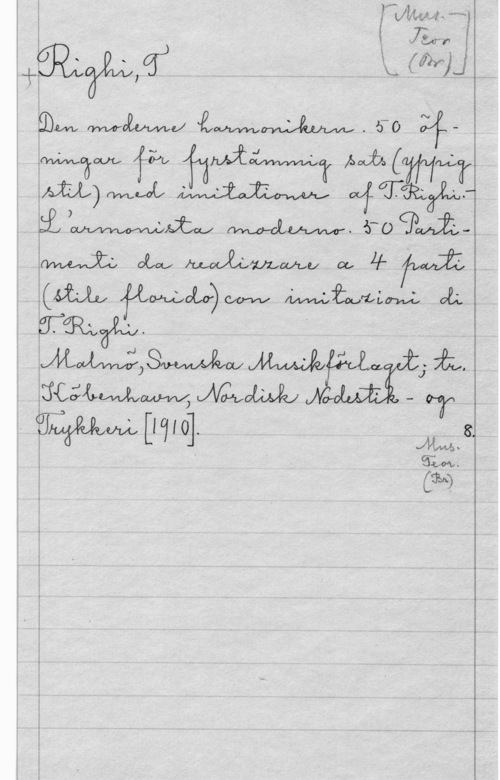 [Mus.-
Teor
(Br)]
Righi, T
Den moderne harmonikern. 50 öf-
ningar för fyrstämmig sats (yppig
stil) med imitationer af T. Righi.-
L'armonista moderno. 50 Parti-
menti da realizzare a 4 parti
(stile florido) con imitazioni di
T. Righi.
Malmö, Svenska Musikförlaget; tr.
Köbenhavn, Nordisk Nodestik- og
Trykkeri [1910].
8.
Mus.
Teor.
(Br)